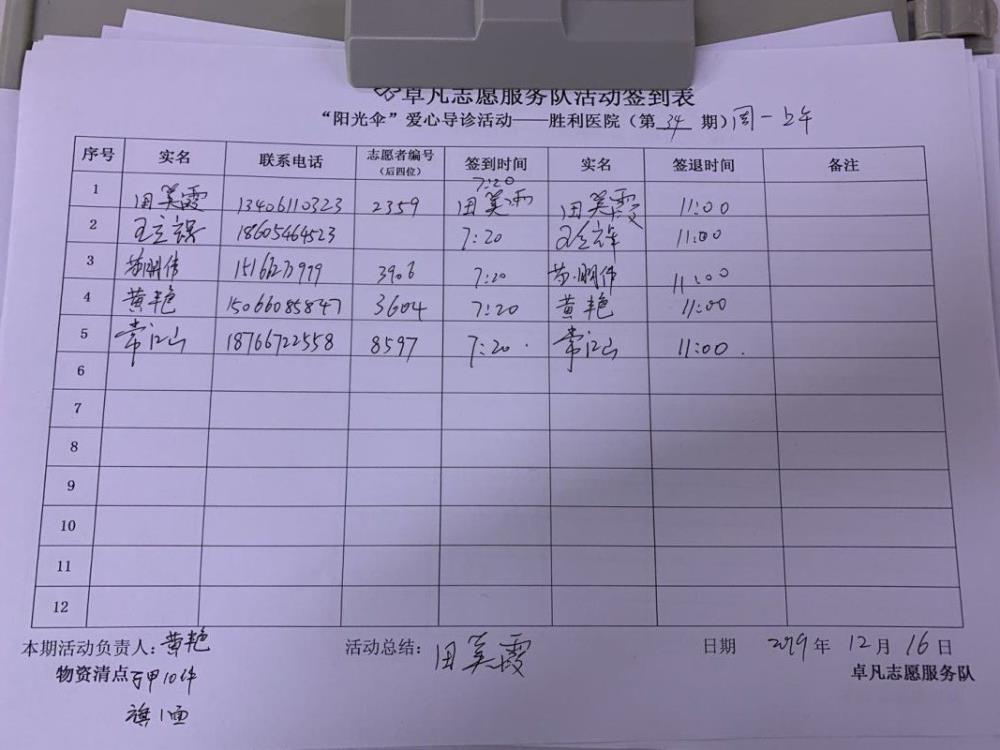 卓凡志愿服务队活动签到表
“阳光伞”爱心导诊活动——胜利医院（第 34 期）周一上午
序号 实名 联系电话 志愿者编号（后四位） 签到时间 实名 签退时间 备注
1 田美霞 13406110323 2359 7:20 田美霞 11:00
2 18605464523 7:20 11:00
3 3906 7:20 11:00
4 黄艳 15066085847 3604 7:20 黄艳 11:00
5 常江山 18766722558 8597 7:20. 常江山 11:00.
6
7
8
9
10
11
12
本期活动负责人：黄艳 活动总结：田美霞 日期 2019年 12月 16日
物资清点 马甲10件 卓凡志愿服务队
旗1面